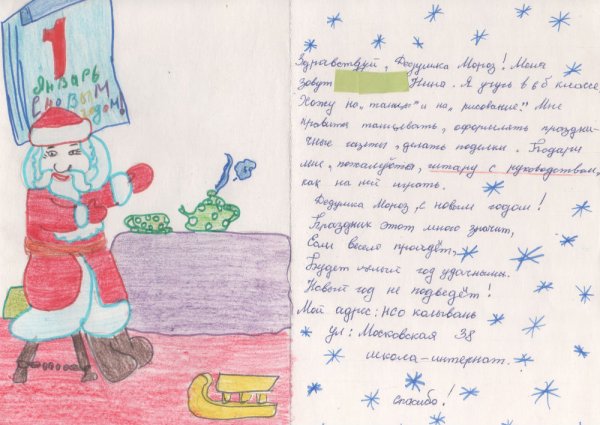 1
Январь
С новым
годом!
Здравствуй, Дедушка Мороз! Меня
зовут Нина. Я учусь в 6 б классе.
Хожу на „танцы" и на „рисование". Мне
нравится танцевать, оформлять празднич-
ные газеты, делать поделки. Подари
мне, пожалуйста, гитару с руководством,
как на ней играть.
Дедушка Мороз, с новым годом!
Праздник этот много значит,
Если весело пройдёт,
Будет целый год удачным.
Новый год не подведёт!
Мой адрес: НСО колывань
ул: Московская 38
школа-интернат.
спасибо!